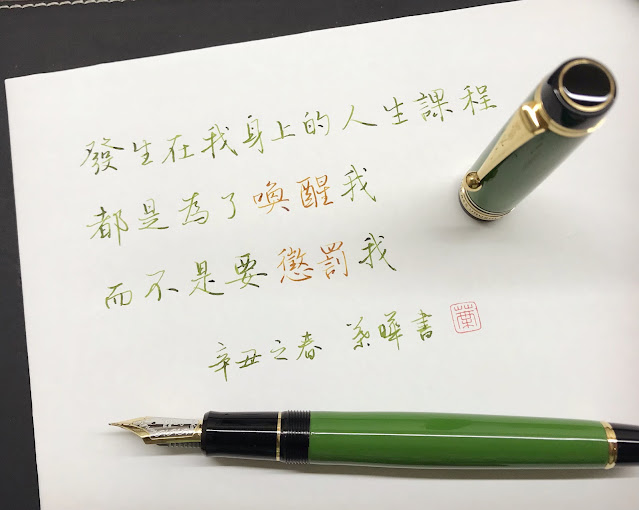 發生在我身上的人生課程
都是為了喚醒我
而不是要懲罰我
辛丑之春 葉曄書
葉